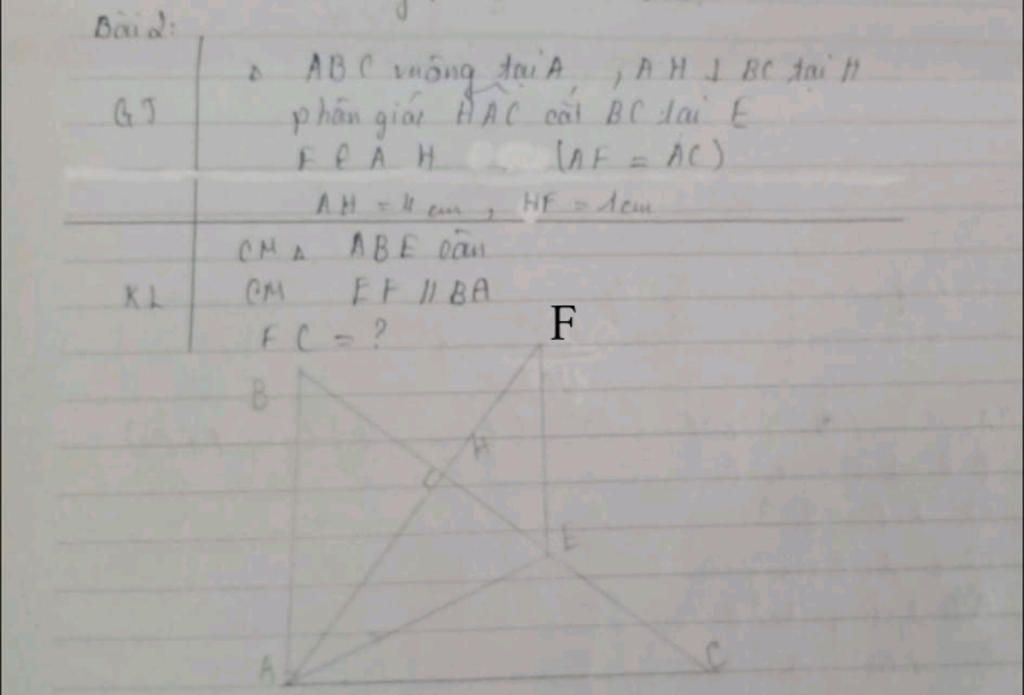 Bài 2:
Δ ABC vuông tại A, AH ⊥ BC tại H
GT phân giác HAC cắt BC tại E
F ∈ AH (AF = AC)
AH = 4 cm, HF = 1cm
CM Δ ABE cân
KL CM EF // BA
FC = ?
F
B
H
E
A
C